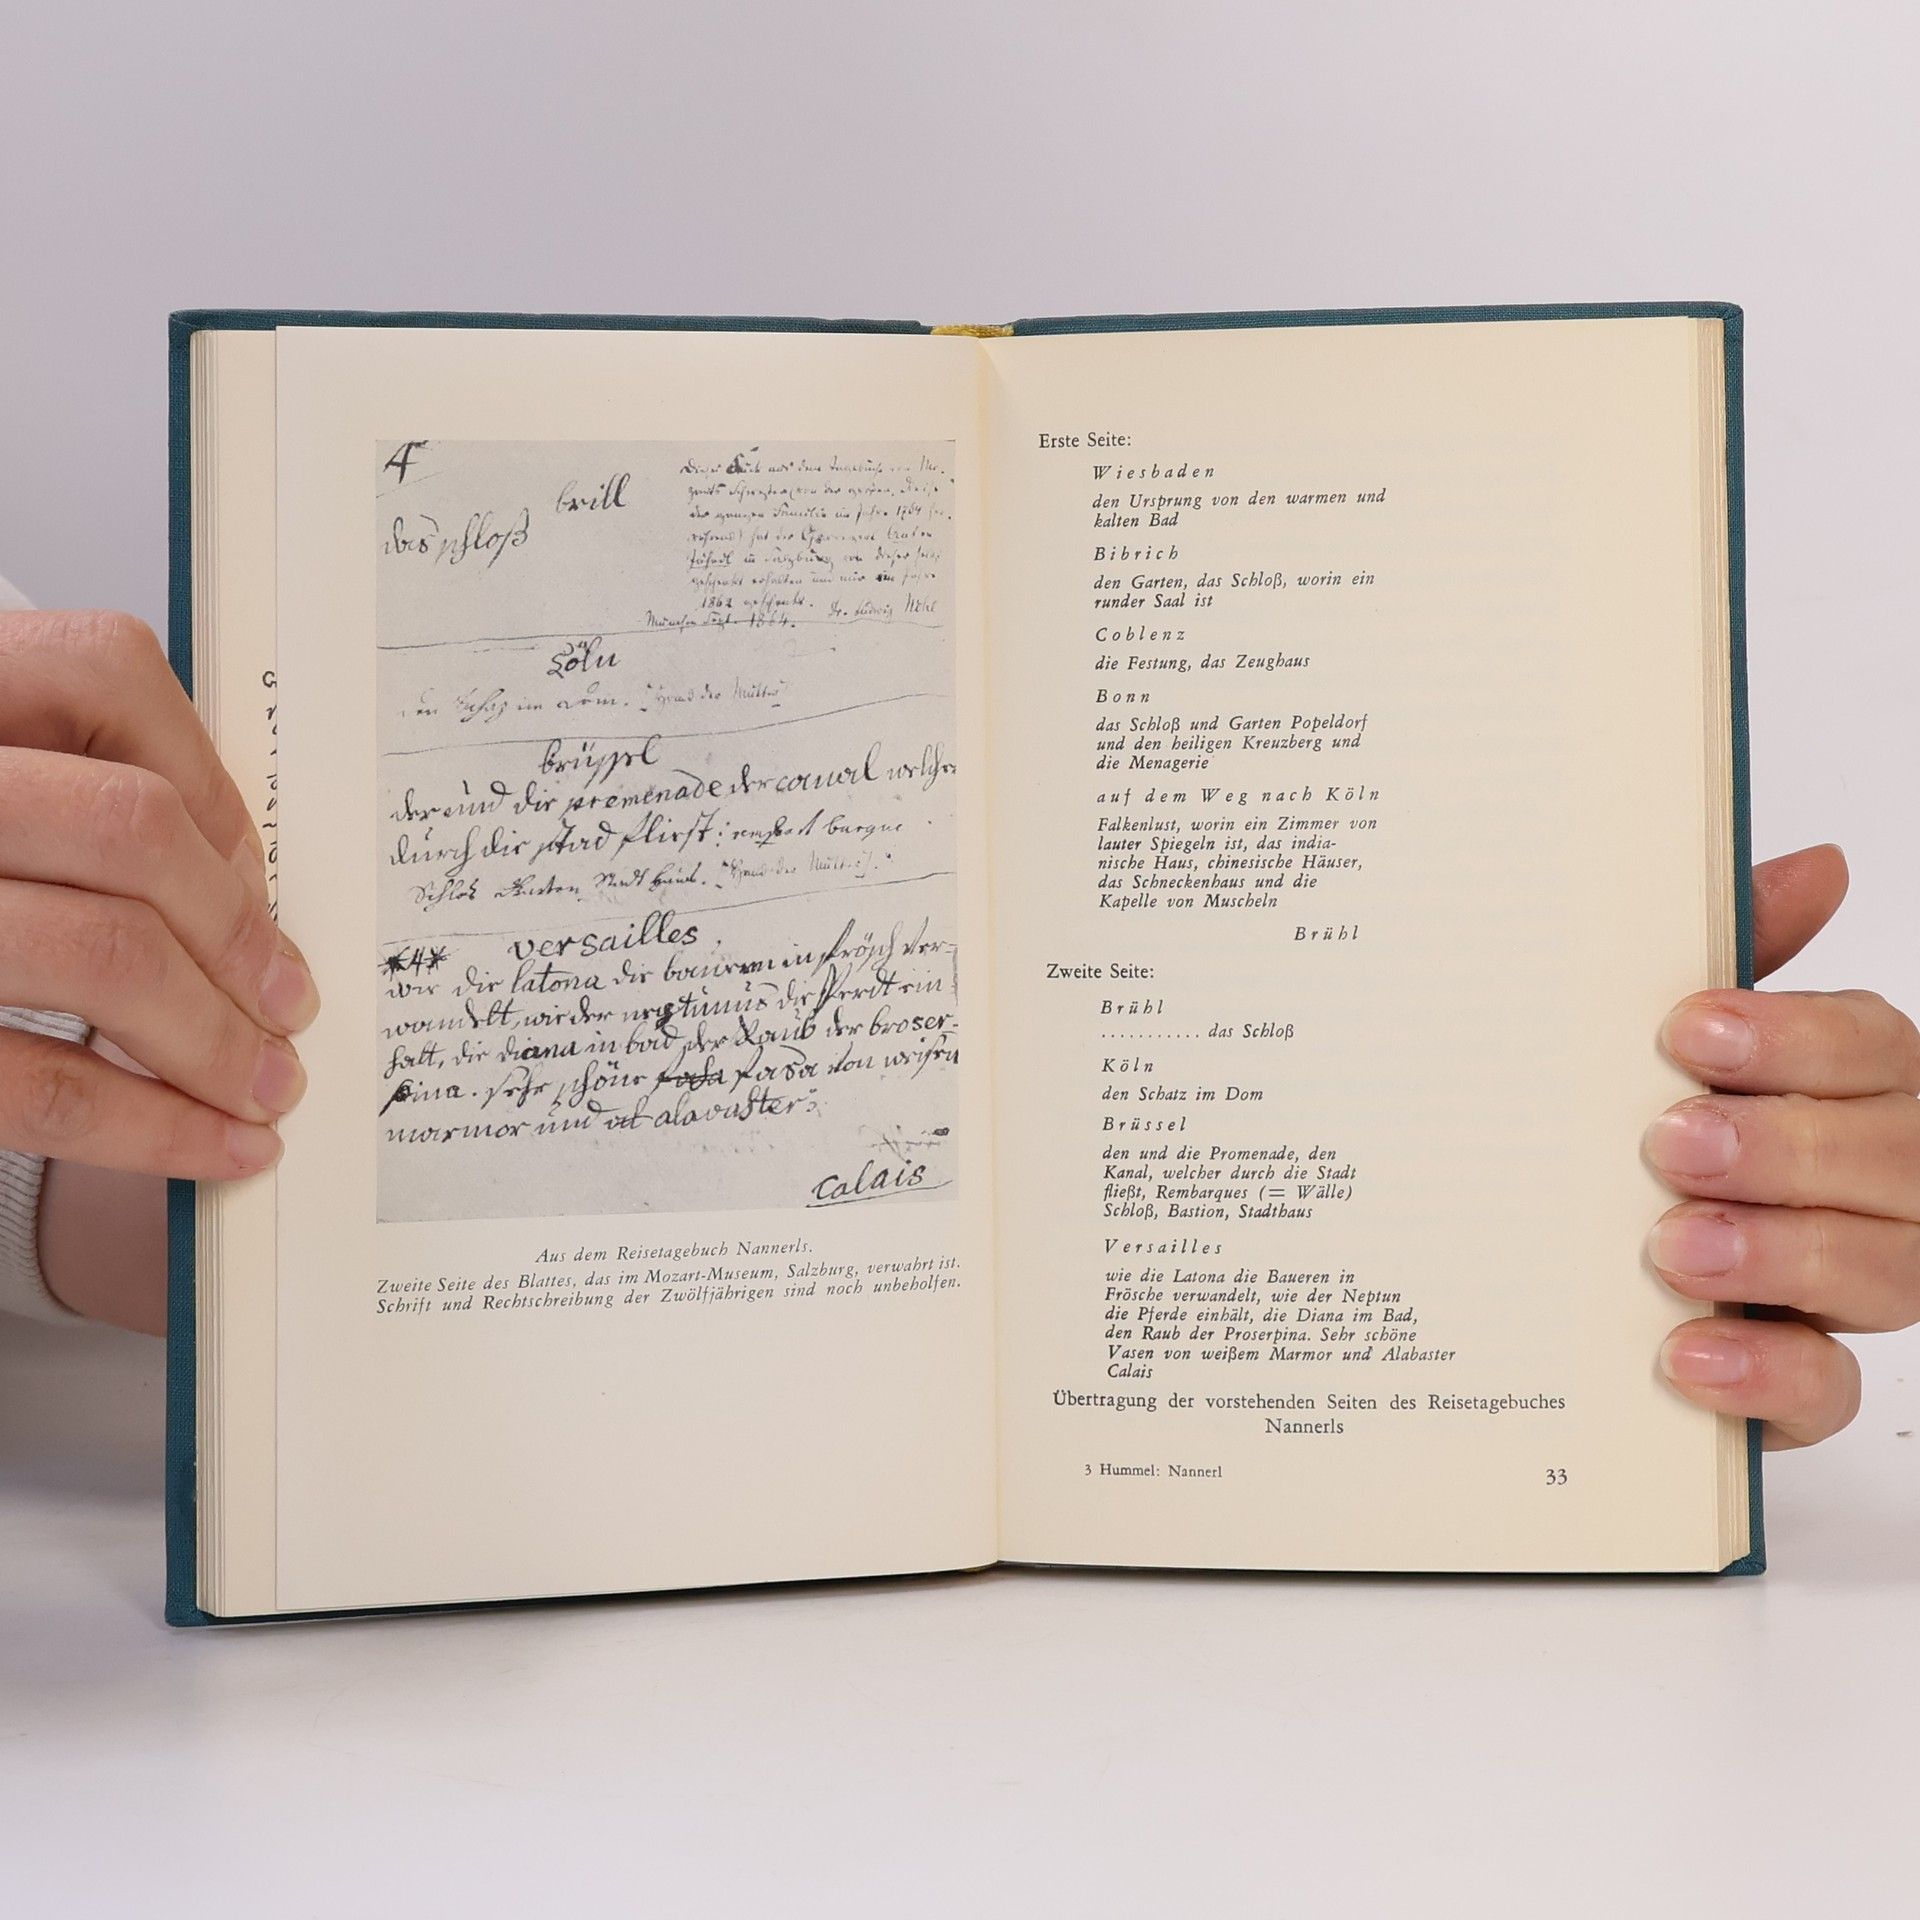 4
brill
das schloß
1864.
Cöln
den Schaz im Dom. [Hand der Mutter]
brüssel
der und die promenade der canal welcher
durch die stad fliest:
Schlos Stadt Haus. [Hand der Mutter].
versailles.
wie die latona die bauren in frösch ver-
wandelt, wie der neptunus die Pferdt ein-
halt, die diana in bad, der Raub der broser-
pina. sehr schöne fasa von weisen
marmor und alavaster:
Calais
Aus dem Reisetagebuch Nannerls.
Zweite Seite des Blattes, das im Mozart-Museum, Salzburg, verwahrt ist.
Schrift und Rechtschreibung der Zwölfjährigen sind noch unbeholfen.
Erste Seite:
Wiesbaden
den Ursprung von den warmen und
kalten Bad
Bibrich
den Garten, das Schloß, worin ein
runder Saal ist
Coblenz
die Festung, das Zeughaus
Bonn
das Schloß und Garten Popeldorf
und den heiligen Kreuzberg und
die Menagerie
auf dem Weg nach Köln
Falkenlust, worin ein Zimmer von
lauter Spiegeln ist, das india-
nische Haus, chinesische Häuser,
das Schneckenhaus und die
Kapelle von Muscheln
Brühl
Zweite Seite:
Brühl
........... das Schloß
Köln
den Schatz im Dom
Brüssel
den und die Promenade, den
Kanal, welcher durch die Stadt
fließt, Rembarques (= Wälle)
Schloß, Bastion, Stadthaus
Versailles
wie die Latona die Baueren in
Frösche verwandelt, wie der Neptun
die Pferde einhält, die Diana im Bad,
den Raub der Proserpina. Sehr schöne
Vasen von weißem Marmor und Alabaster
Calais
Übertragung der vorstehenden Seiten des Reisetagebuches
Nannerls
3 Hummel: Nannerl
33